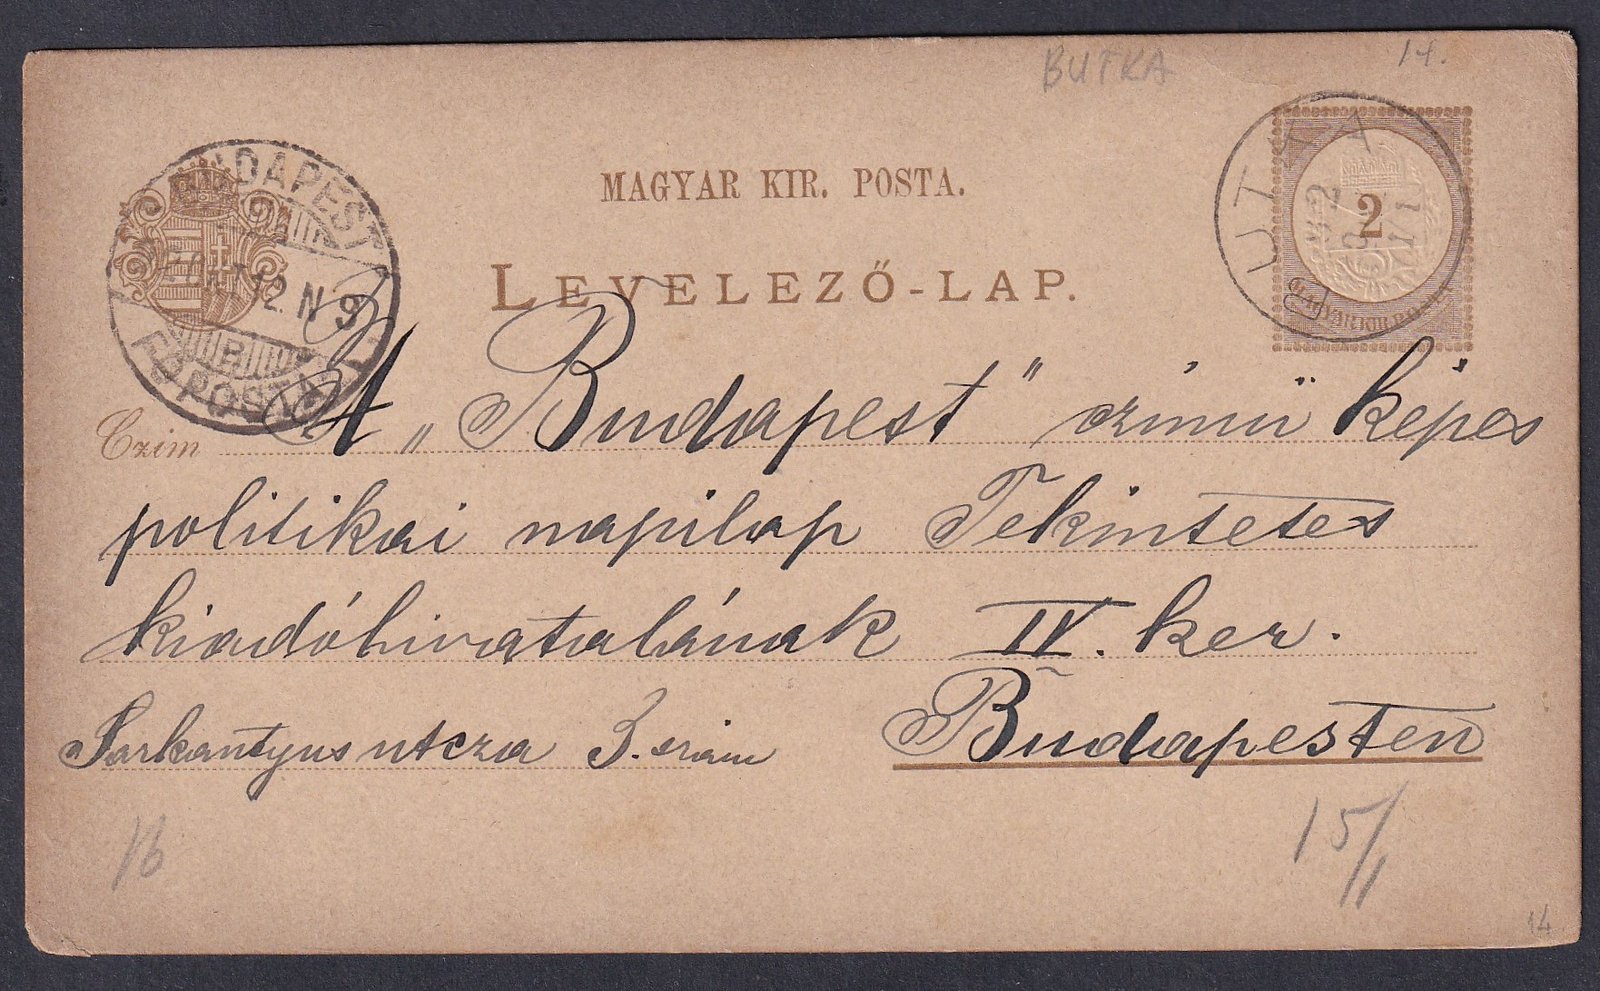 BUTKA 14.
MAGYAR KIR. POSTA.
LEVELEZŐ-LAP.
BUDAPEST
12. N 9
B
FŐPOSTA
2
MAGYAR KIR. POSTA
Czim A „Budapest" czimü képes
politikai napilap Tekintetes
kiadóhivatalának IV. ker.
Sarkantyus utcza 3. szám Budapesten
16
15/1
14